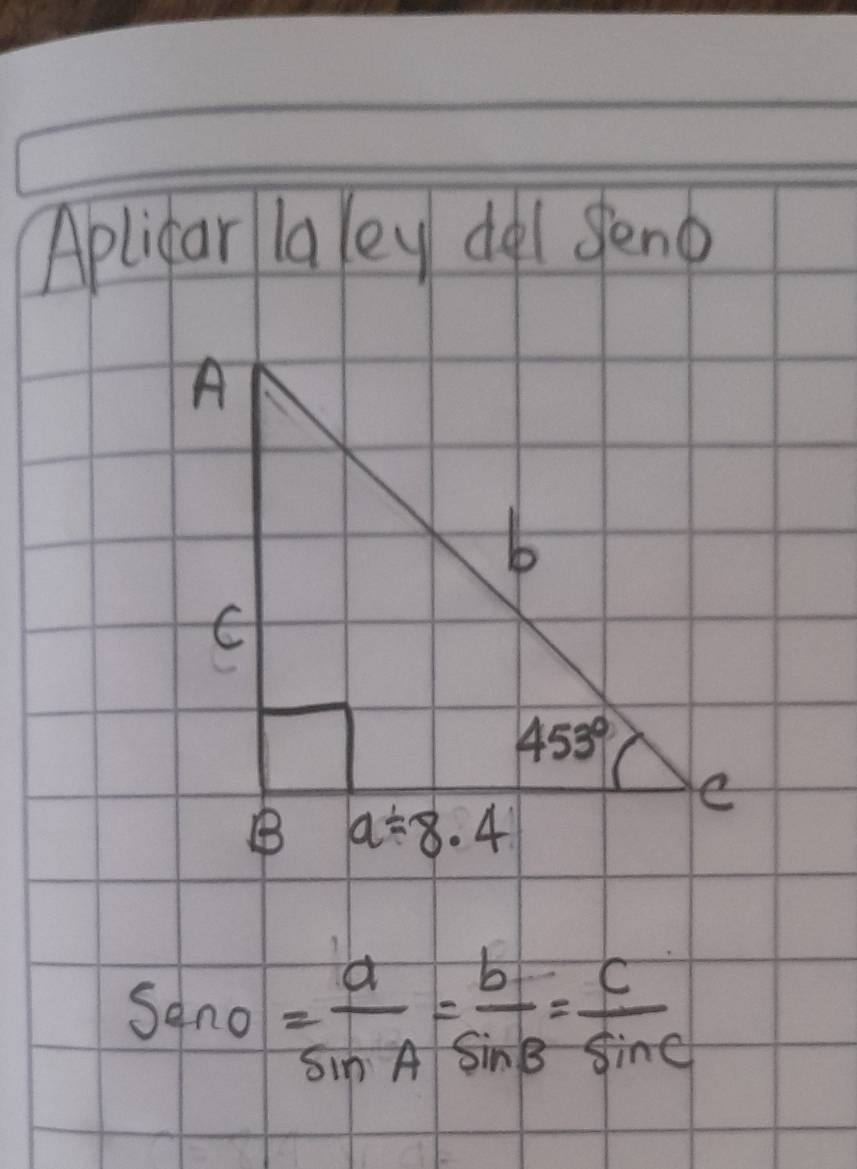 Aplicar la ley del Seno
A
b
C
453°
C
B a=8.4
Seno = a/Sin A = b/Sin B = c/Sin C